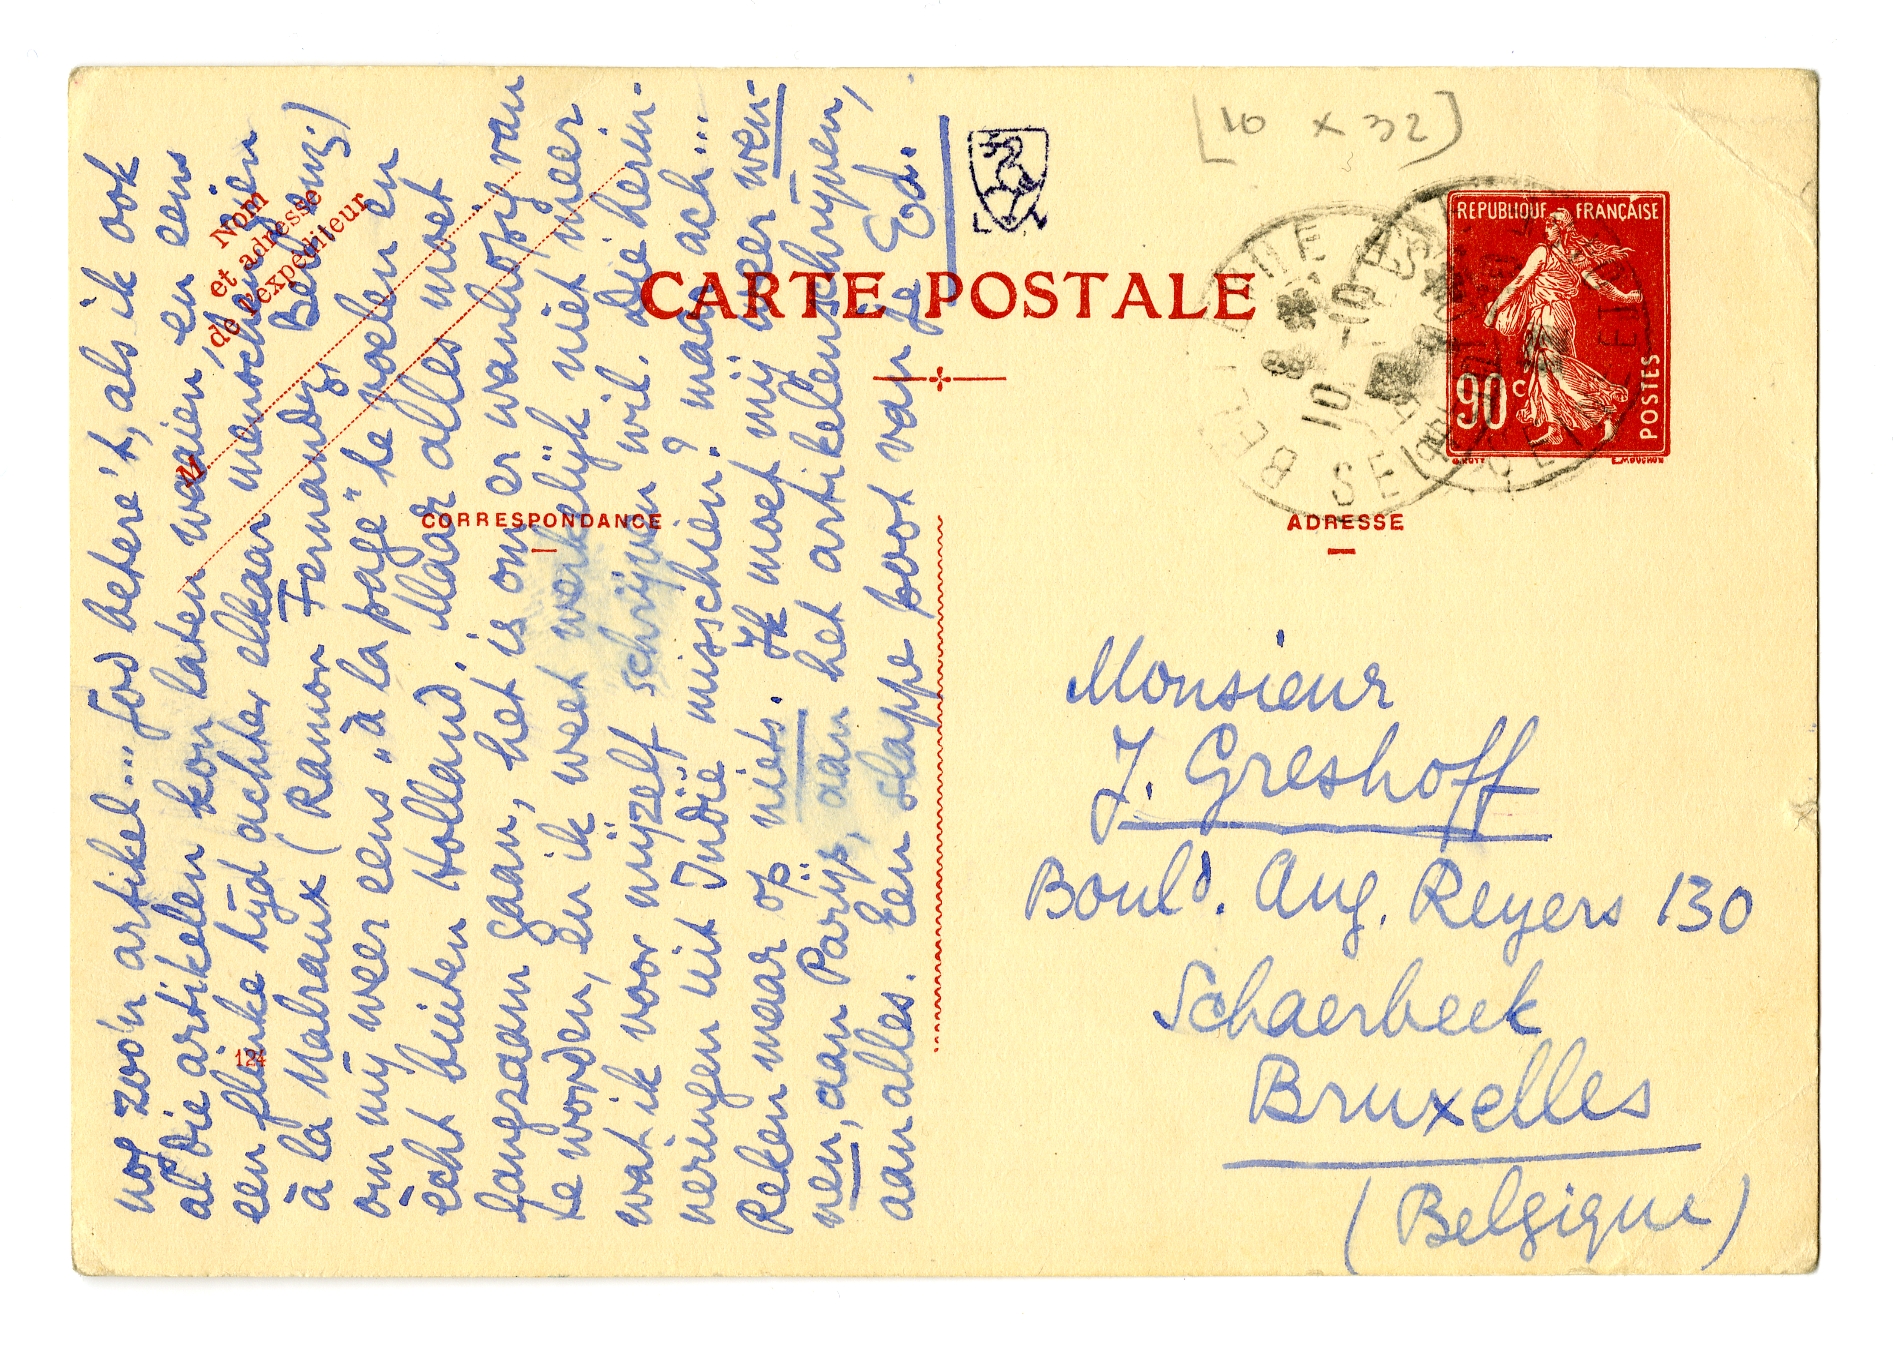 nog zoo'n artikel... God betere 't, als ik ook
al die artikelen kon laten waaien, en eens
een flinke tijd achter elkaar menschen zien
à la Malraux (Ramon Fernandez, Berl enz.)
om mij weer eens „à la page" te voelen en
echt buiten Holland. Maar alles moet
langzaam gaan, het is om er wanhopig van
te worden, en ik weet werkelijk niet meer
wat ik voor mijzelf schrijven wil. Die herin-
neringen uit Indië misschien? maar ach...
Reken maar op niets. Ik moet mij weer wen-
nen, aan Parijs, aan het artikelenschrijven,
aan alles. Een slappe poot van je
Ed.
Nom
et adresse
de l'expéditeur
M
124
[10 x 32]
CARTE POSTALE
REPUBLIQUE FRANÇAISE
90c
POSTES
O. ROTY
E. MOUCHON
BELLEVUE
10
-10
CORRESPONDANCE
ADRESSE
Monsieur
J. Greshoff
Bould. Aug. Reyers 130
Schaerbeek
Bruxelles
(Belgique)